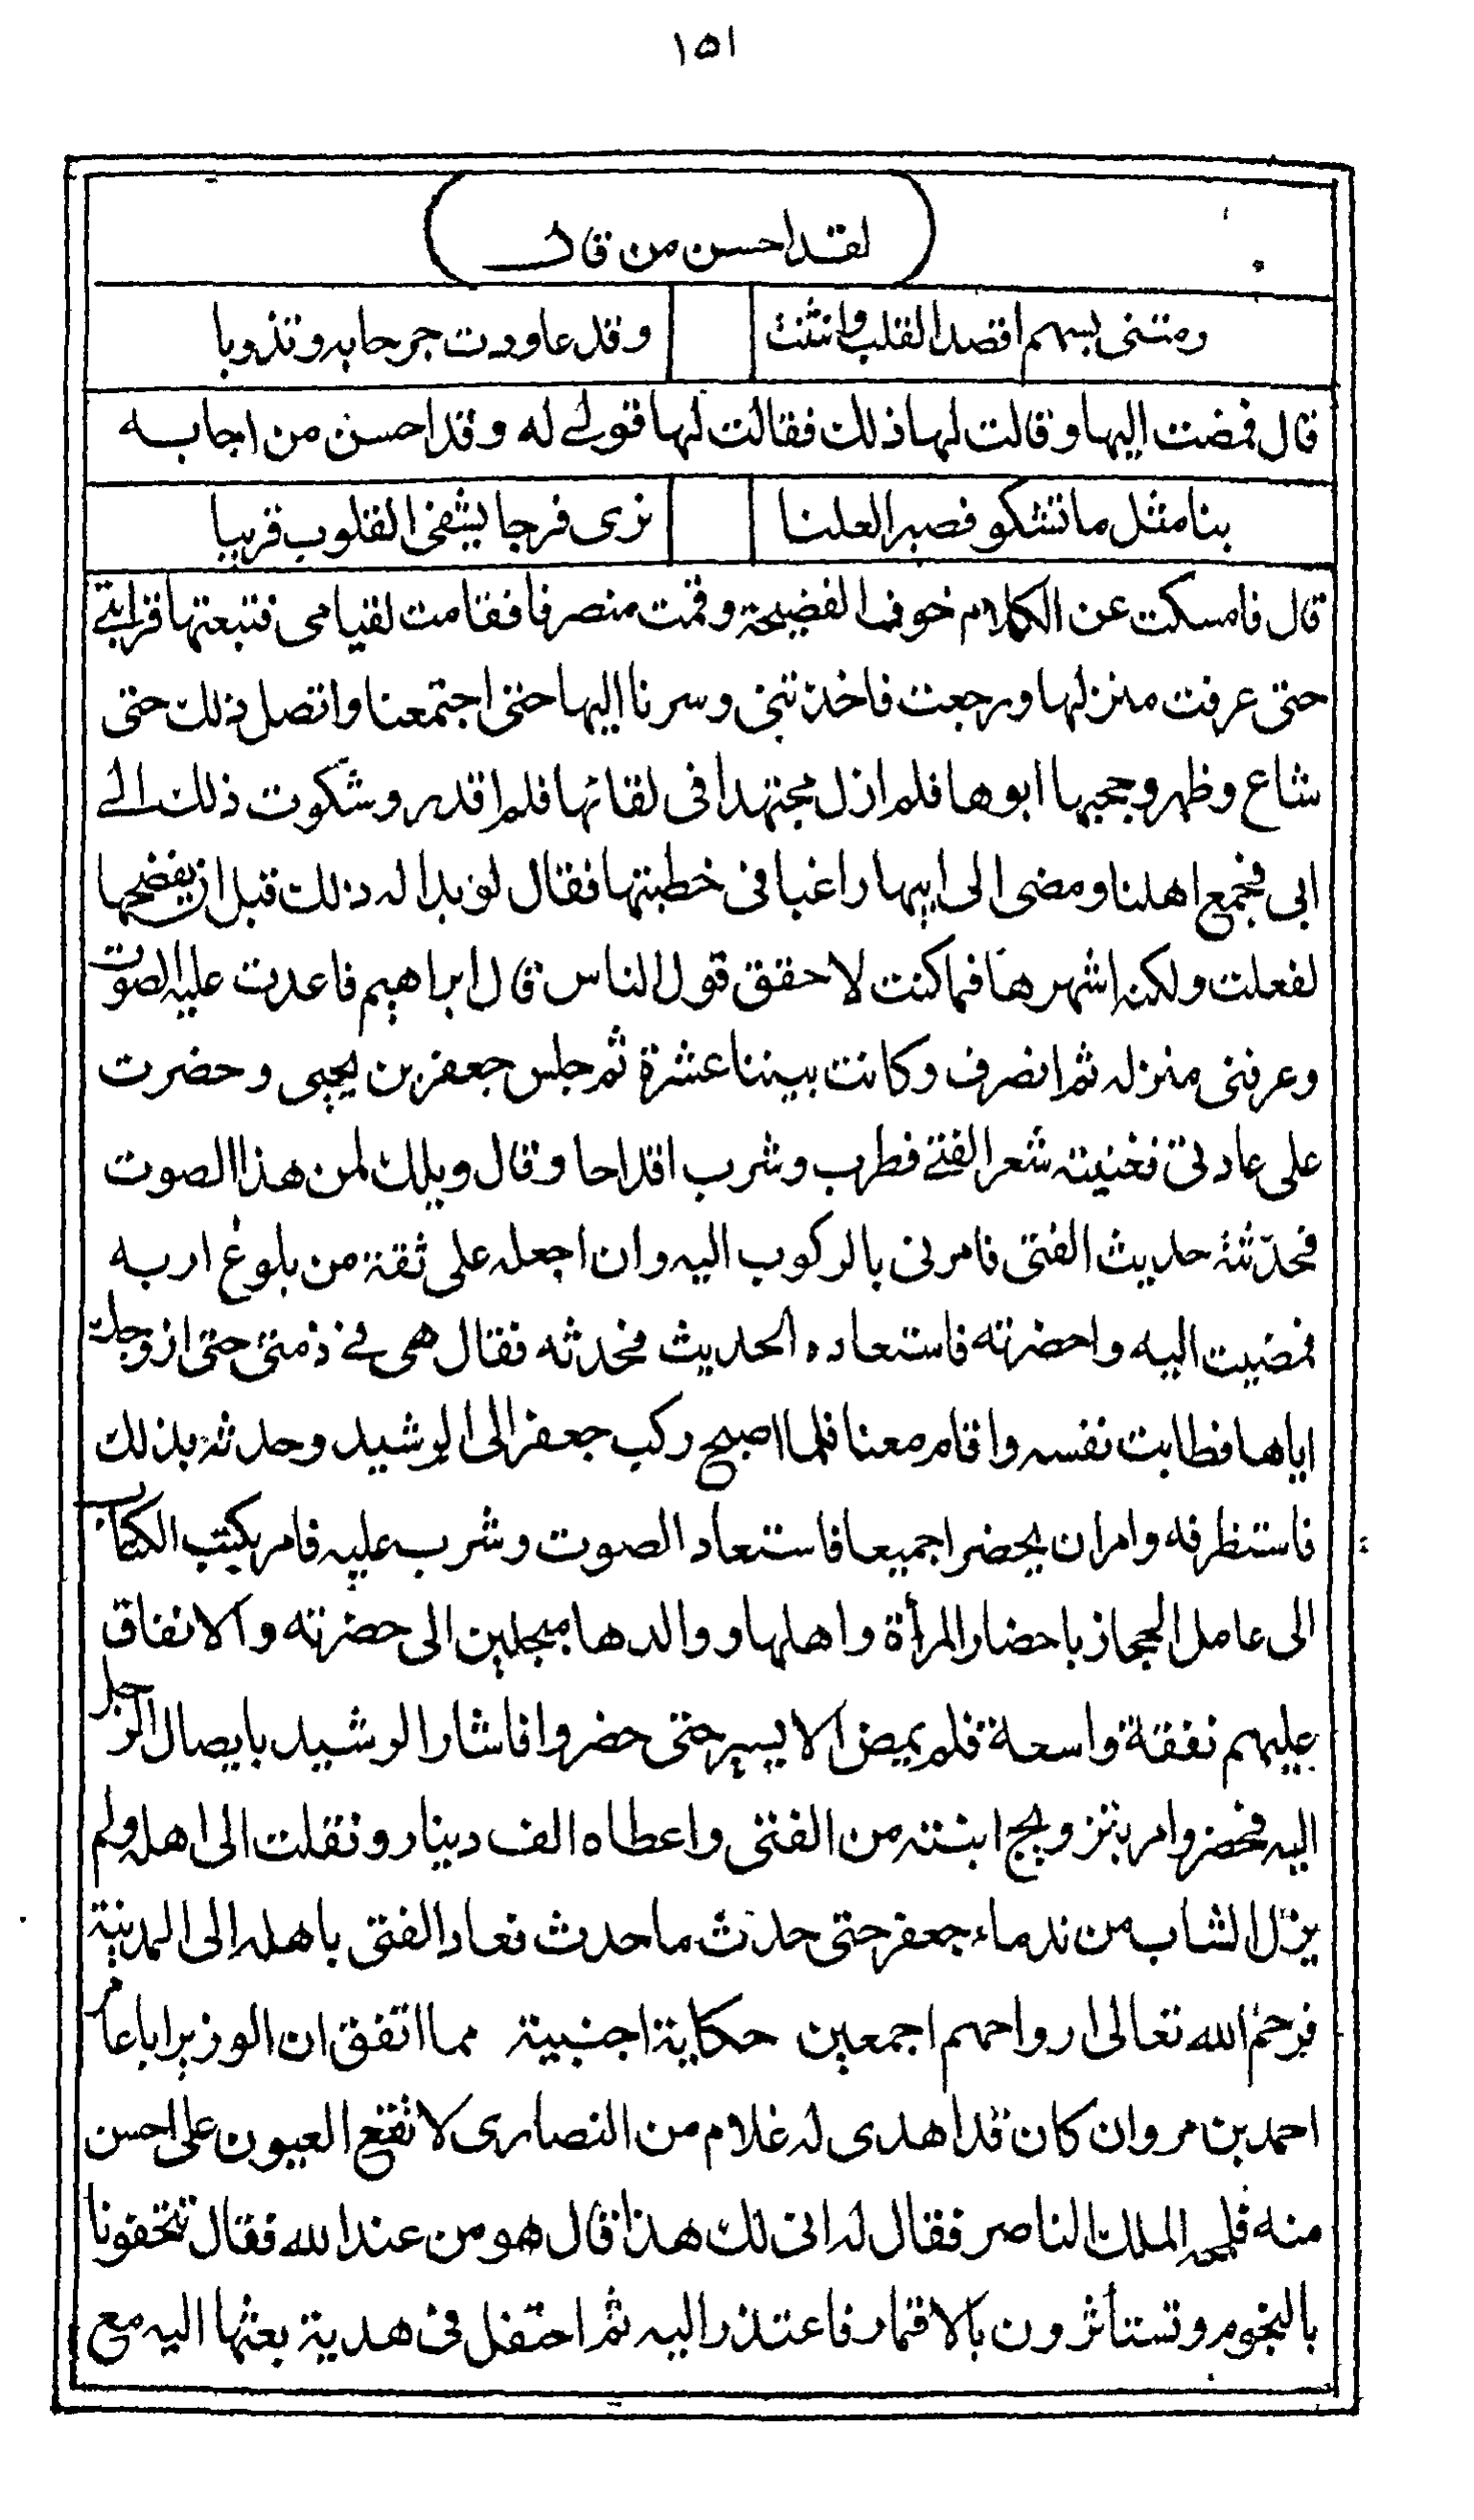 ١٥١
لقد احسن من قال
رمتنى بسهم اقصد القلب وانثنت وقد عاودت جرحا به وتذوبا
قال فمضت اليها وقالت لها ذلك فقالت لها قولى له وقد احسن من اجابه
بنا مثل ما تشكو فصبرا لعلنا نرى فرجا يشفى القلوب قريبا
قال فامسكت عن الكلام خوف الفضيحة وقمت منصرفا فقامت لقيامى فتبعتها قرابتى
حتى عرفت منزلها ورجعت فاخذتنى وسرنا اليها حتى اجتمعنا واتصل ذلك حتى
شاع وظهر وحجبها ابوها فلم ازل مجتهدا فى لقائها فلم اقدر وشكوت ذلك الى
ابى فجمع اهلنا ومضى الى ابيها راغبا فى خطبتها فقال لو بدا له ذلك قبل ان يفضحها
لفعلت ولكنه اشهرها فما كنت لاحقق قول الناس قال ابراهيم فاعدت عليه الصوت
وعرفنى منزله ثم انصرف وكانت بيننا عشرة ثم جلس جعفر بن يحيى وحضرت
على عادتى فغنيته شعر الفتى فطرب وشرب اقداحا وقال ويلك لمن هذا الصوت
فحدّثته حديث الفتى فامرنى بالركوب اليه وان اجعله على ثقة من بلوغ اربه
فمضيت اليه واحضرته فاستعاده الحديث فحدثه فقال هى فى ذمتى حتى ازوجك
اياها فطابت نفسه واقام معنا فلما اصبح ركب جعفر الى الرشيد وحدثه بذلك
فاستظرفه وامر ان يحضرا جميعا فاستعاد الصوت وشرب عليه فامر بكتب الكتاب
الى عامل الحجاز باحضار المرأة واهلها ووالدها مبجلين الى حضرته والانفاق
عليهم نفقة واسعة فلم يمض الا يسير حتى حضروا فاشار الرشيد بايصال الرجل
اليه فحضر وامر بتزويج ابنته من الفتى واعطاه الف دينار ونقلت الى اهله ولم
يزل الشاب من ندماء جعفر حتى حدث ما حدث فعاد الفتى باهله الى المدينة
فرحم الله تعالى ارواحهم اجمعين حكاية اجنبية مما اتفق ان الوزير ابا عامر
احمد بن مروان كان قد اهدى له غلام من النصارى لا تقع العيون على احسن
منه فلمحه الملك الناصر فقال له انى لك هذا قال هو من عند الله فقال تتحفونا
بالنجوم وتستأثرون بالاقمار فاعتذر اليه ثم احتفل فى هدية بعثها اليه مع